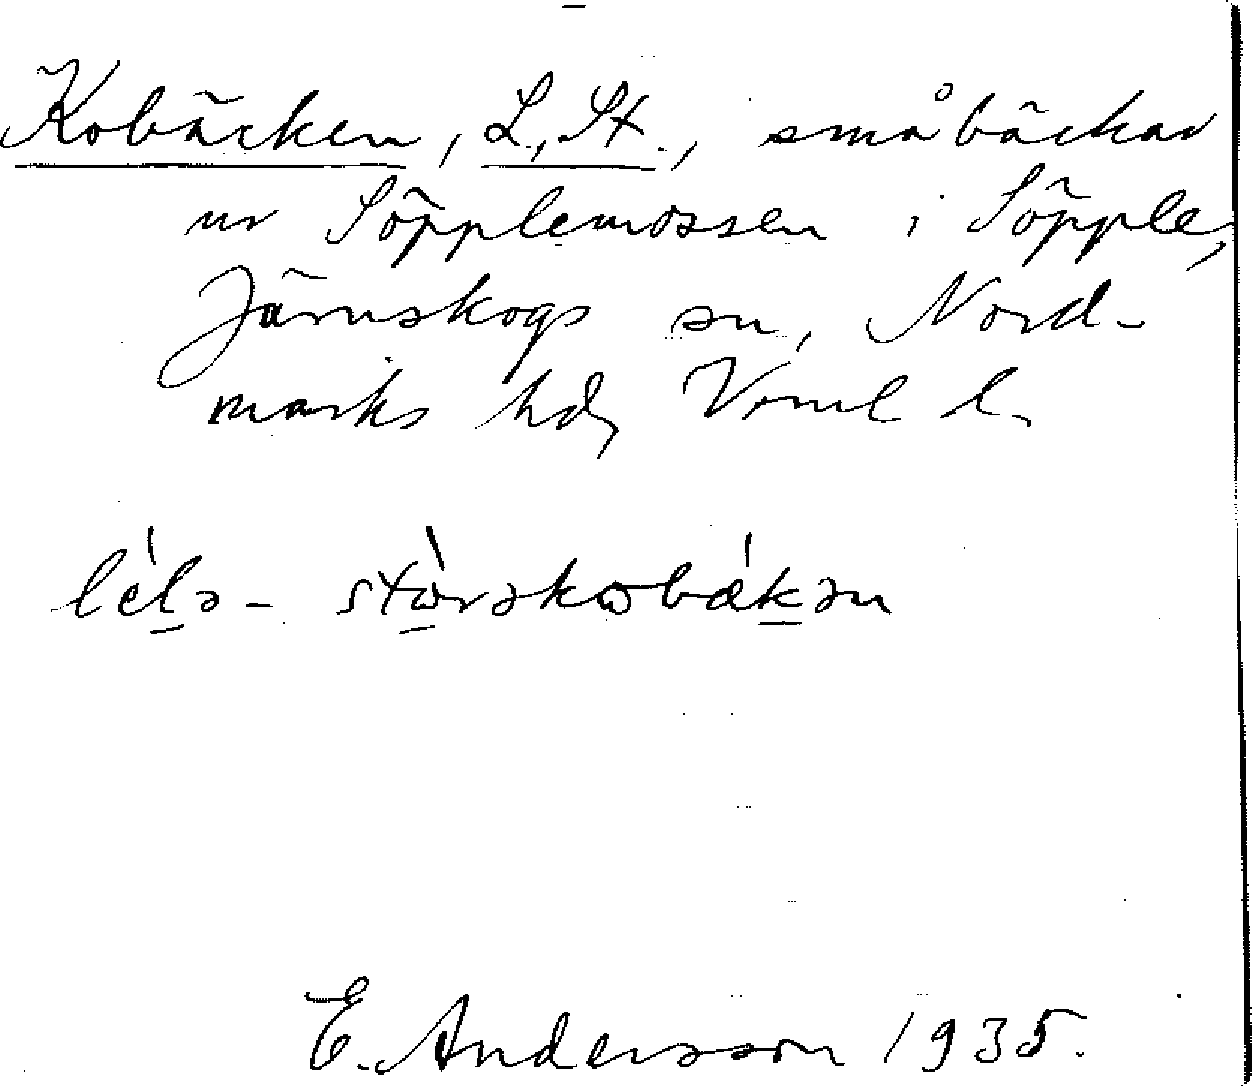 Kobäcken, L., St., småbäckar
ur Söpplemossen i Söpple,
Järnskogs sn, Nord-
marks hd, Vrml l.
lél̠ə- stòrəkobák̠ən
E. Andersson 1935.